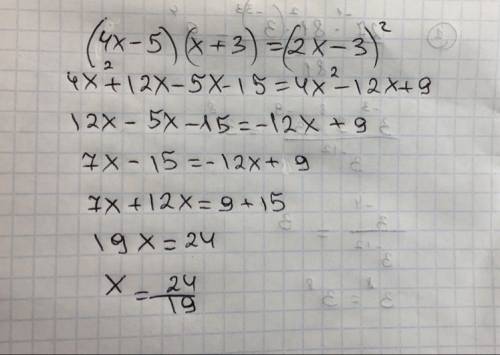 (4x-5)(x+3)=(2x-3)²
4x²+12x-5x-15=4x²-12x+9
12x-5x-15=-12x+9
7x-15=-12x+9
7x+12x=9+15
19x=24
x=24/19